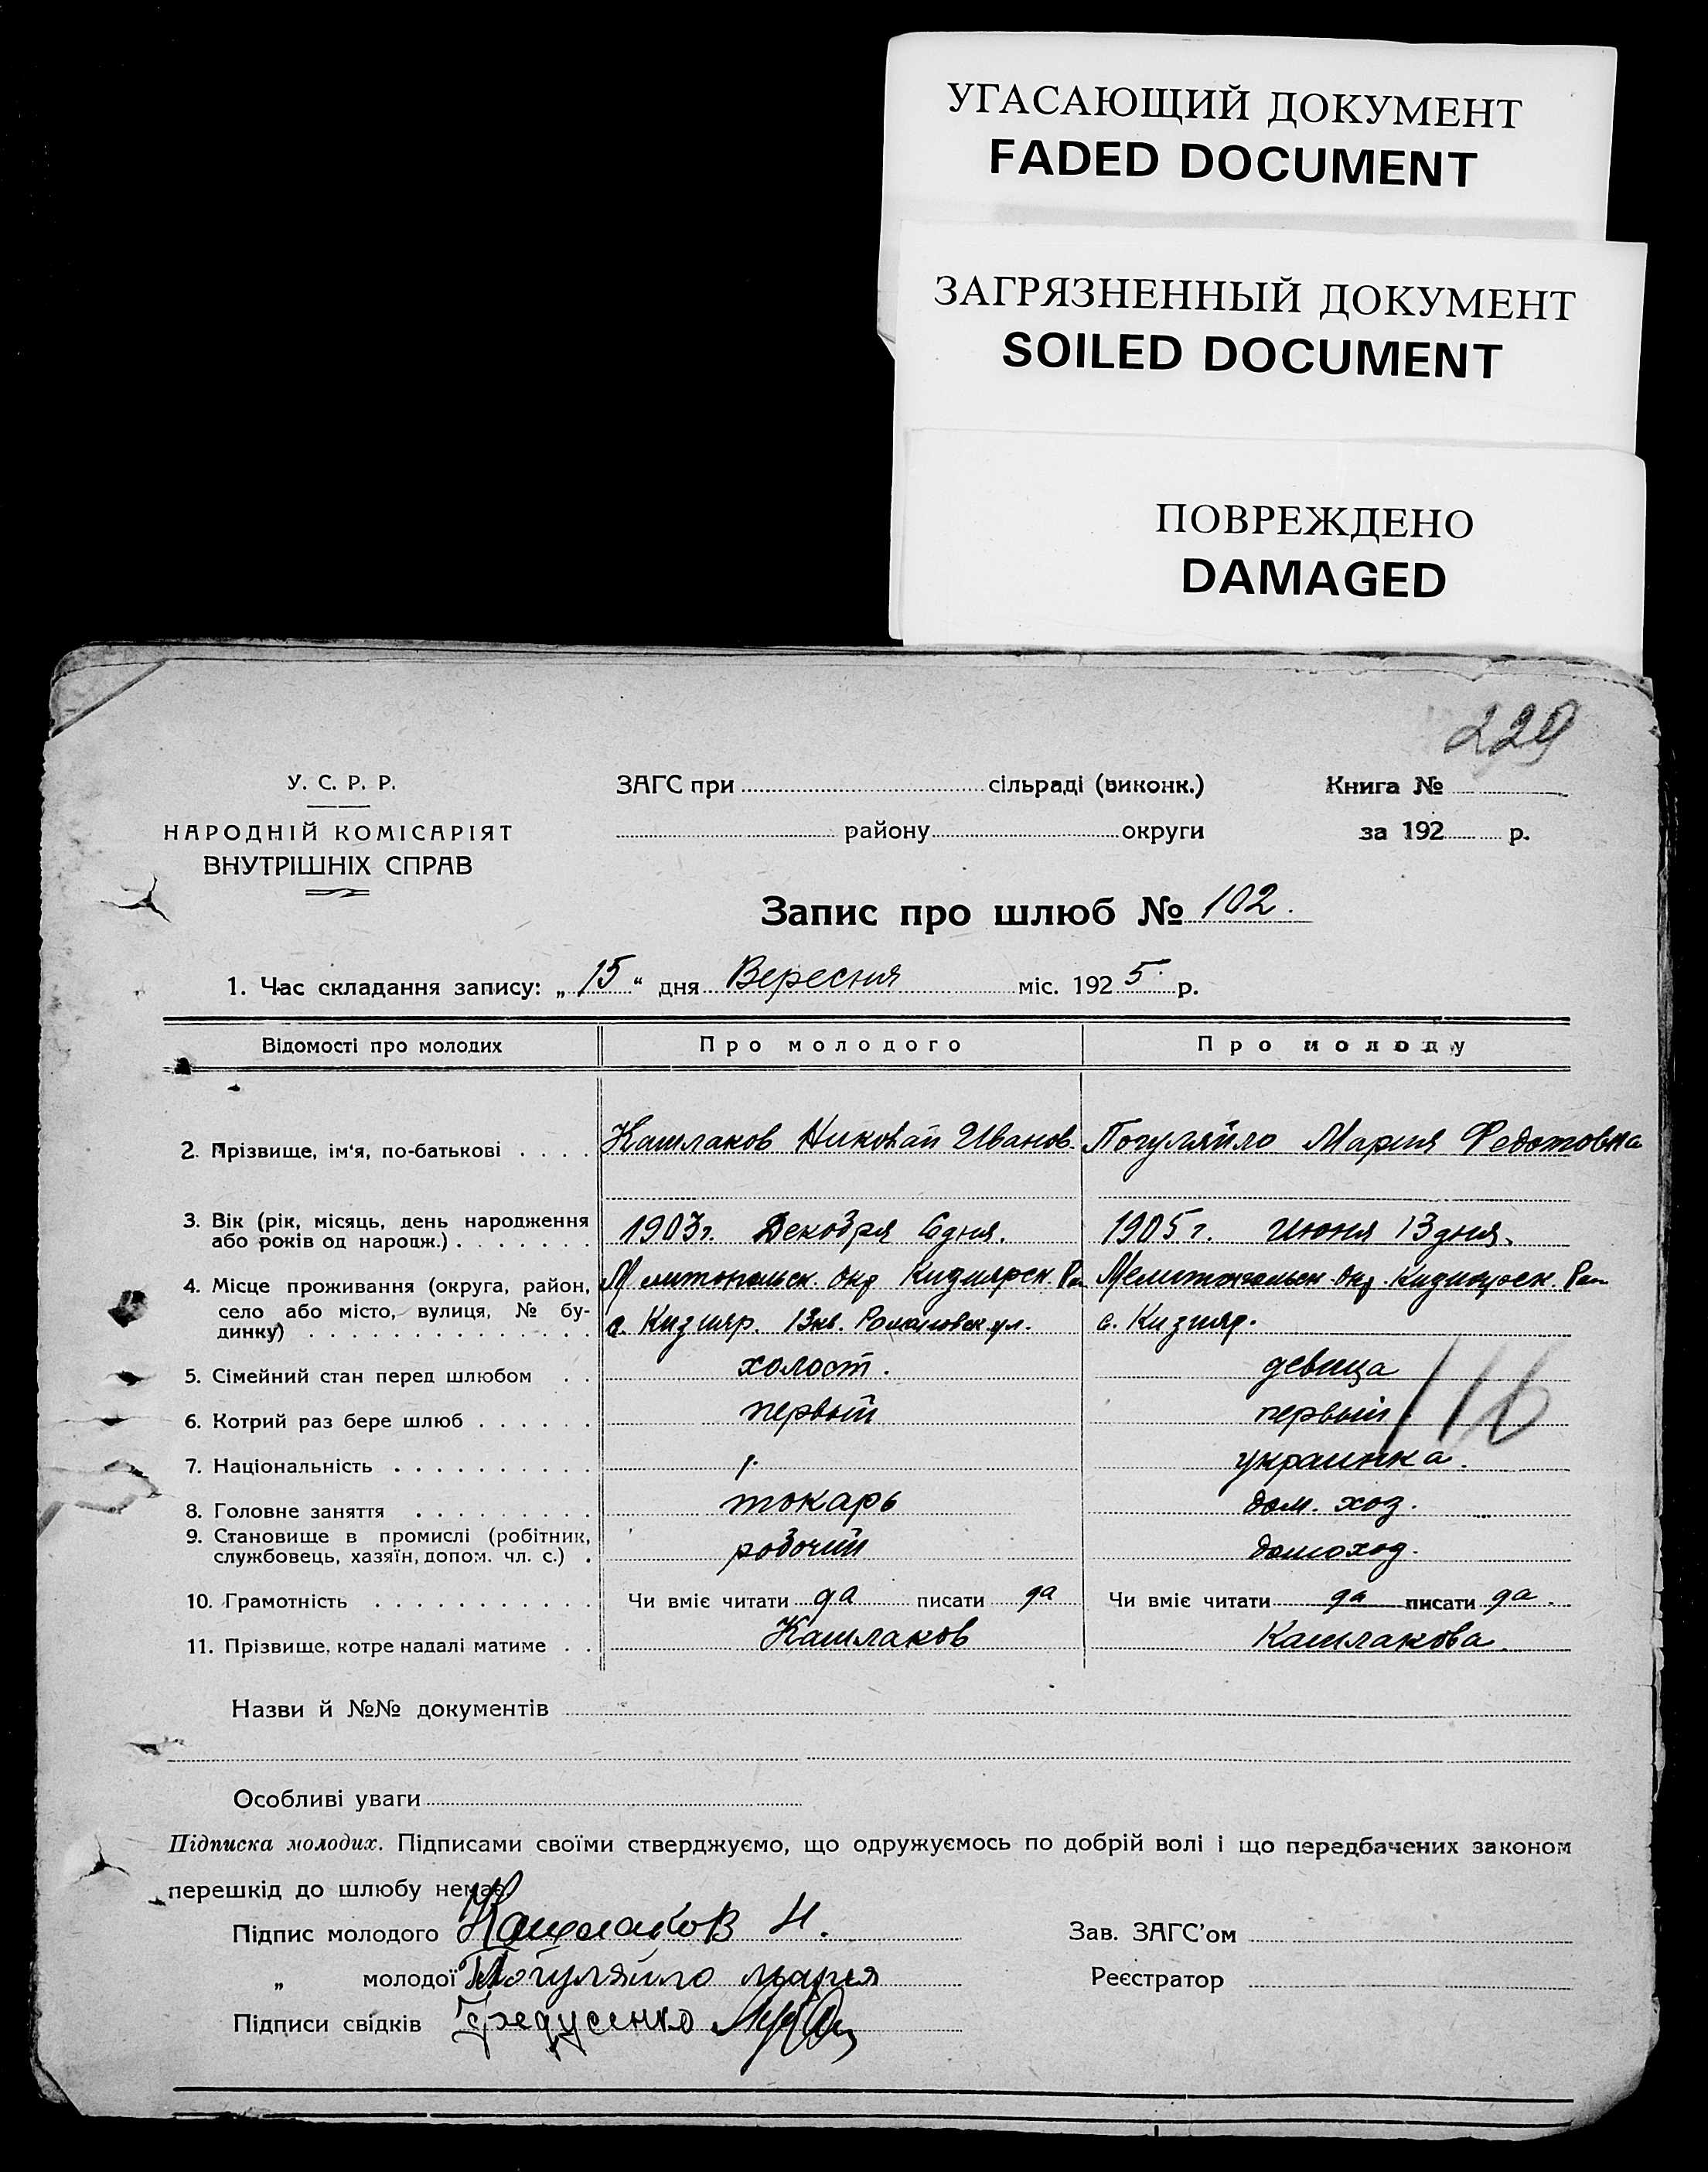 УГАСАЮЩИЙ ДОКУМЕНТ
FADED DOCUMENT
ЗАГРЯЗНЕННЫЙ ДОКУМЕНТ
SOILED DOCUMENT
ПОВРЕЖДЕНО
DAMAGED
229
У. С. Р. Р.
НАРОДНІЙ КОМІСАРІЯТ
ВНУТРІШНІХ СПРАВ
ЗАГС при сільраді (виконк.)
району округи
Книга №
за 192 р.
Запис про шлюб № 102.
1. Час складання запису: „15“ дня Вересня міс. 1925 р.
Відомості про молодих Про молодого Про молоду
2. Прізвище, ім'я, по-батькові Кашлаков Николай Иванов. Погуляйло Мария Федотовна
3. Вік (рік, місяць, день народження
або років од народж.) 1903г. Декабря 6 дня. 1905 г. июня 13 дня.
4. Місце проживання (округа, район, Мелитопольск. Окр Кизиярск. Ра Мелитопольск. Окр. Кизиярск. Рай
село або місто, вулиця, № бу- с. Кизияр. 13кв. ул. с. Кизияр.
динку)
5. Сімейний стан перед шлюбом холост. девица
6. Котрий раз бере шлюб первый первый
116
7. Національність р. украинка.
8. Головне заняття токарь дом. хоз.
9. Становище в промислі (робітник,
службовець, хазяїн, допом. чл. с.) рабочий домохоз.
10. Грамотність Чи вміє читати да писати да Чи вміє читати да писати да.
11. Прізвище, котре надалі матиме Кашлаков Кашлакова.
Назви й №№ документів
Особливі уваги
Підписка молодих. Підписами своїми стверджуємо, що одружуємось по добрій волі і що передбачених законом
перешкід до шлюбу немає.
Підпис молодого Кашлаков Н. Зав. ЗАГС'ом
„ молодої Погуляйло мария Реєстратор
Підписи свідків